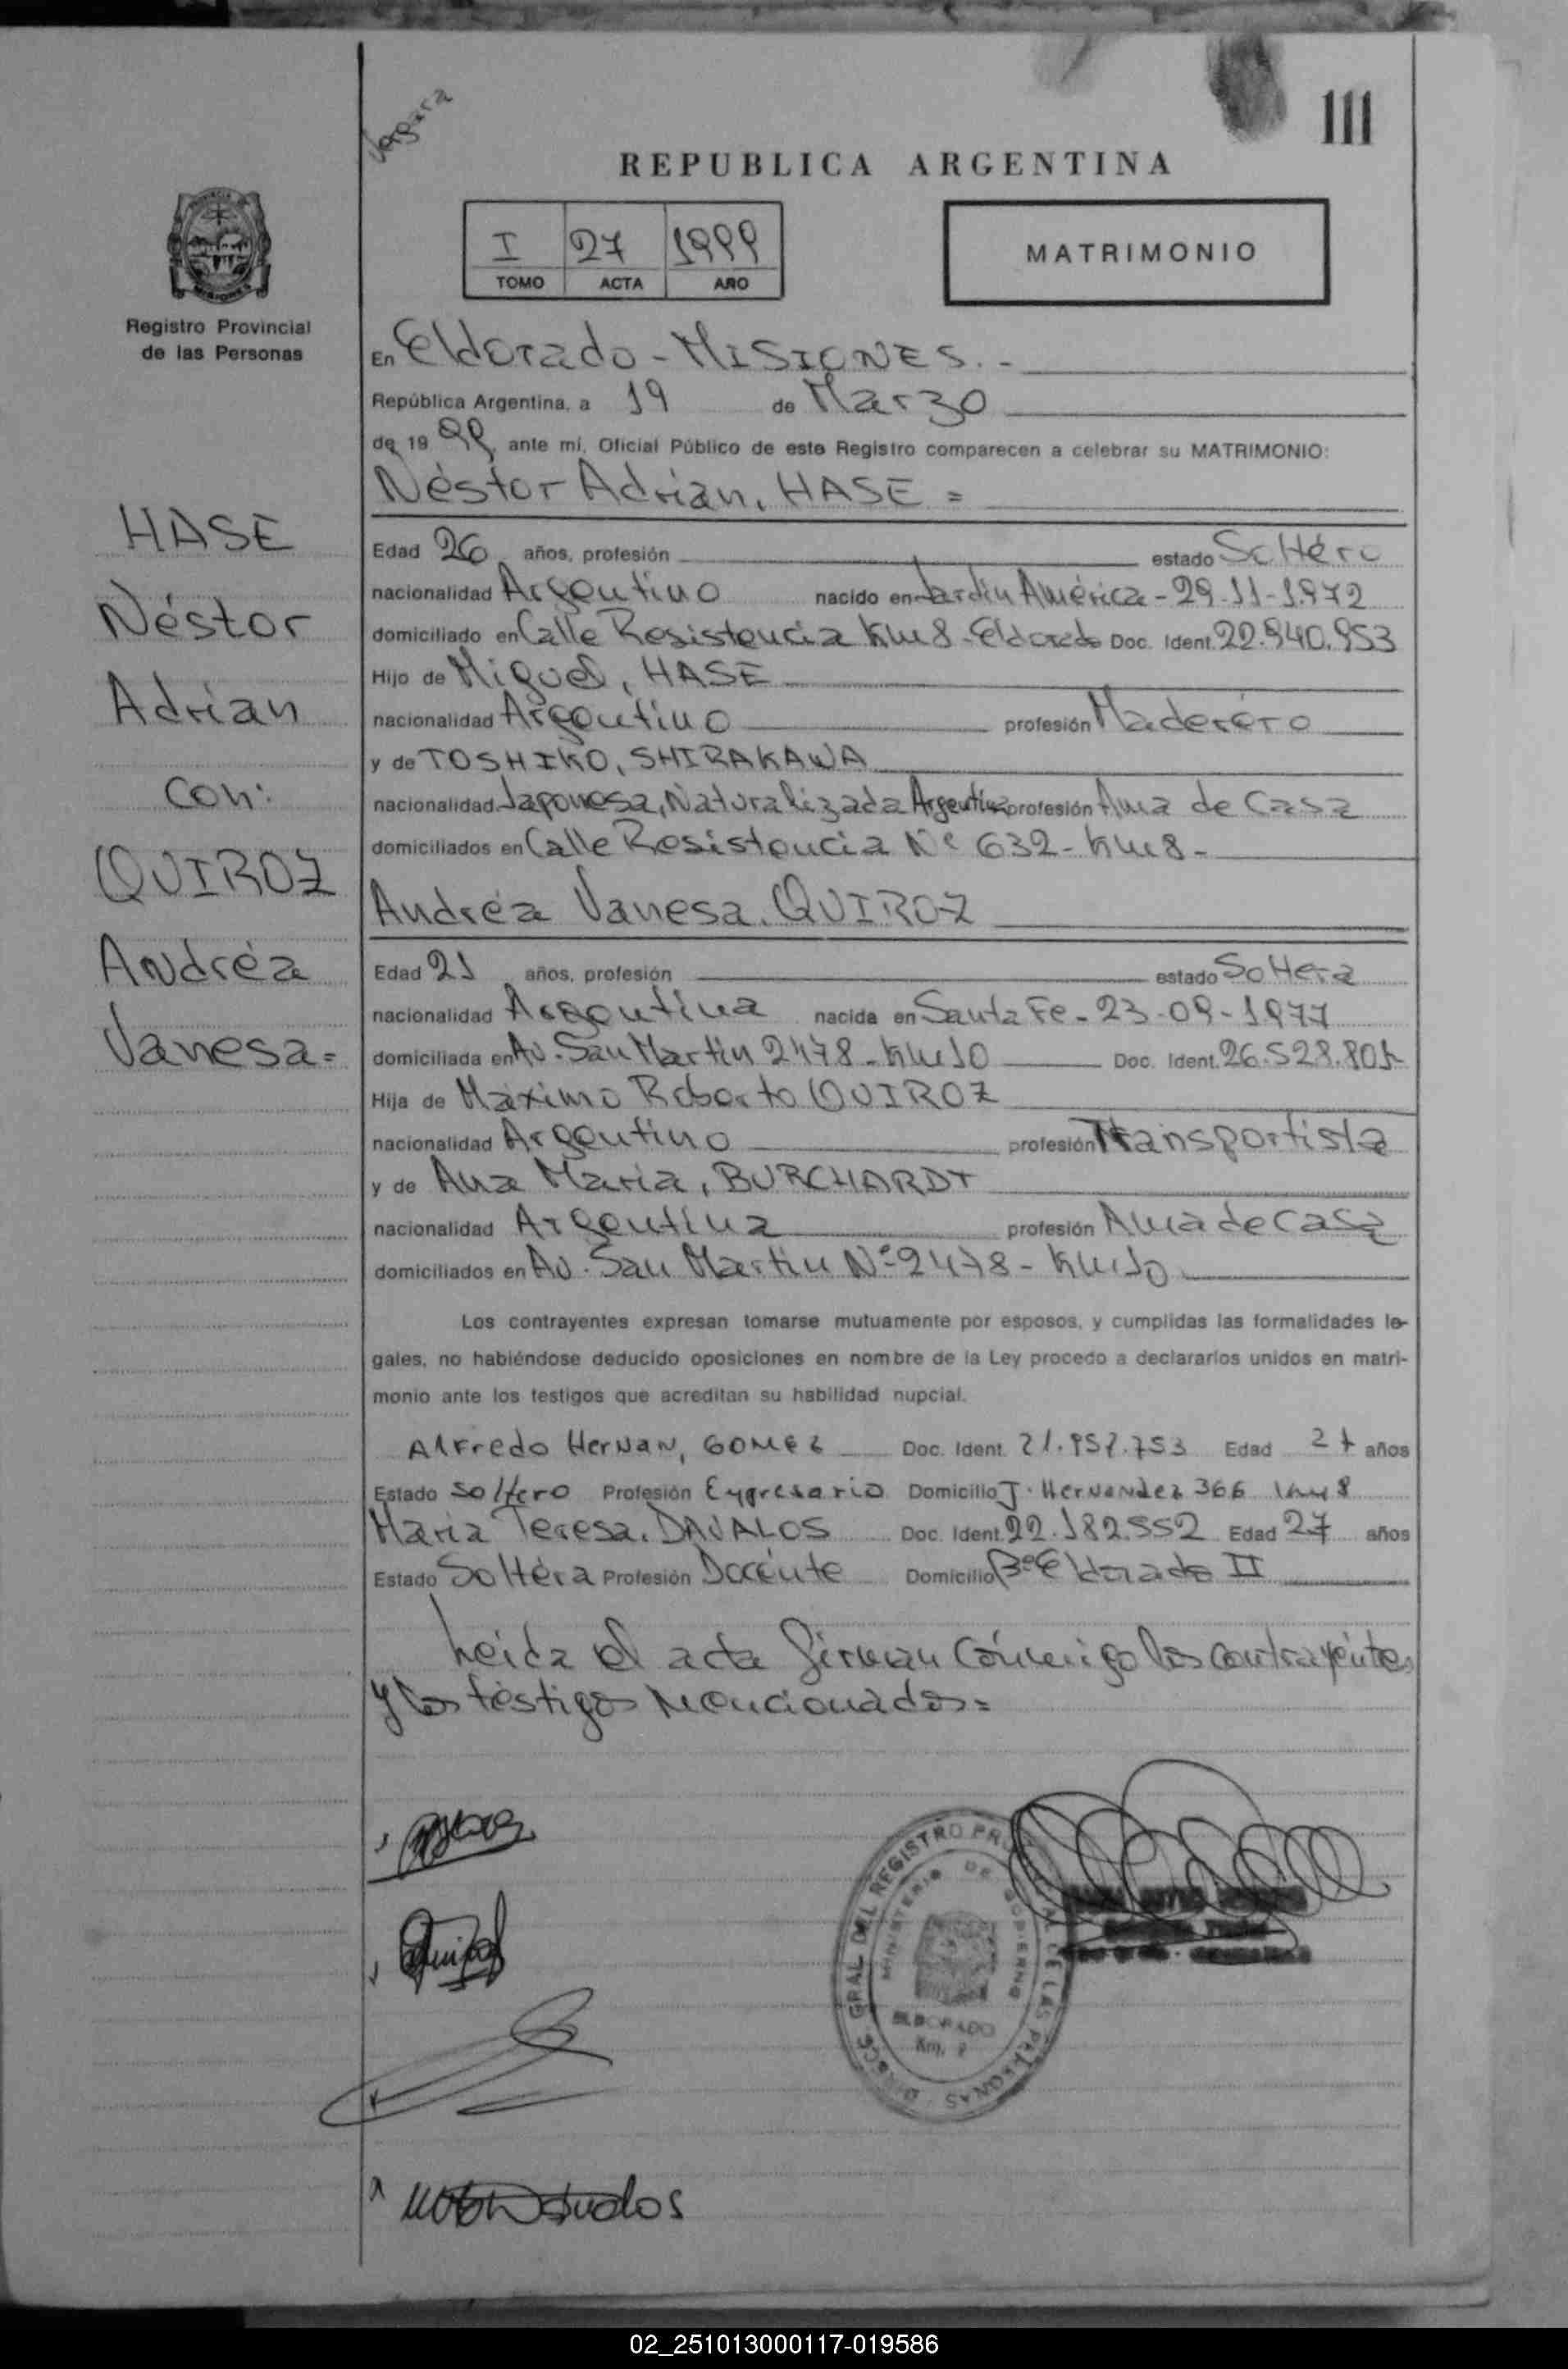 Vergara
III
REPUBLICA ARGENTINA
I 27 1999
TOMO ACTA AÑO
MATRIMONIO
Registro Provincial
de las Personas
En Eldorado - MISIONES. -
República Argentina, a 19 de Marzo
de 19 99 ante mí, Oficial Público de este Registro comparecen a celebrar su MATRIMONIO:
Néstor Adrián, HASE =
HASE
Néstor
Adrian
Con:
QUIROZ
Andréa
Vanesa =
Edad 26 años, profesión estado Soltéro
nacionalidad Argentino nacido en Jardín América - 29-11-1972
domiciliado en Calle Resistencia Km 8 - Eldorado Doc. Ident. 22.940.953
Hijo de Miguel, HASE
nacionalidad Argentino profesión Maderéro
y de TOSHIKO, SHIRAKAWA
nacionalidad Japonesa, Naturalizada Argentina profesión Ama de Casa
domiciliados en Calle Resistencia Nº 632 - Km 8 -
Andréa Vanesa, QUIROZ
Edad 21 años, profesión estado Soltera
nacionalidad Argentina nacida en Santa Fe - 23-09-1977
domiciliada en Av. San Martin 2478 - Km 10 Doc. Ident. 26.528.801
Hija de Máximo Roberto QUIROZ
nacionalidad Argentino profesión Transportista
y de Ana Maria, BURCHARDT
nacionalidad Argentina profesión Ama de Casa
domiciliados en Av. San Martin Nº 2478 - Km 10
Los contrayentes expresan tomarse mutuamente por esposos, y cumplidas las formalidades le-
gales, no habiéndose deducido oposiciones en nombre de la Ley procedo a declararlos unidos en matri-
monio ante los testigos que acreditan su habilidad nupcial.
Alfredo Hernan, GOMEZ Doc. Ident. 21.957.753 Edad 27 años
Estado soltero Profesión Empresario Domicilio J. Hernandez 366 Km 8
Maria Teresa, DAVALOS Doc. Ident. 22.182.552 Edad 27 años
Estado Soltéra Profesión Docénte Domicilio Bº Eldorado II
Leida el acta firman cónmigo los contrayéntes
y los téstigos mencionados =
DIRECC. GRAL. DEL REGISTRO PROVINCIAL DE LAS PERSONAS
MINISTERIO DE GOBIERNO
ELDORADO
Km.
02_251013000117-019586